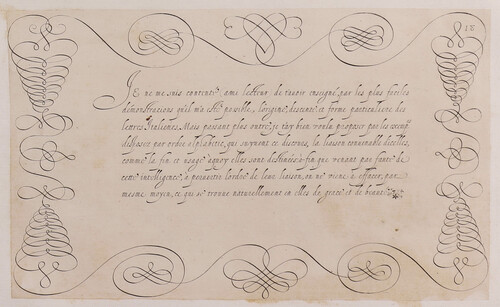 Je ne me suis contenté, ami lecteur de t'avoir enseigné, par les plus faciles
demonstrations qu'il m'a esté possible, l'origine, descente, et forme particuliere des
lettres Italienes. Mais passant plus outre, je t'ay bien voulu proposer par les
disposez par ordre alphabetic, qui suyvent ce discours, la liaison convenable d'icelles,
comme la fin et usage auquel elles sont destinées: à fin que venant par faute de
cette intelligence, a pervertir l'ordre de leur liaison, on ne viene à effacer, par
mesme moyen, ce qui se trouve naturellement en elles de grace et de beauté.